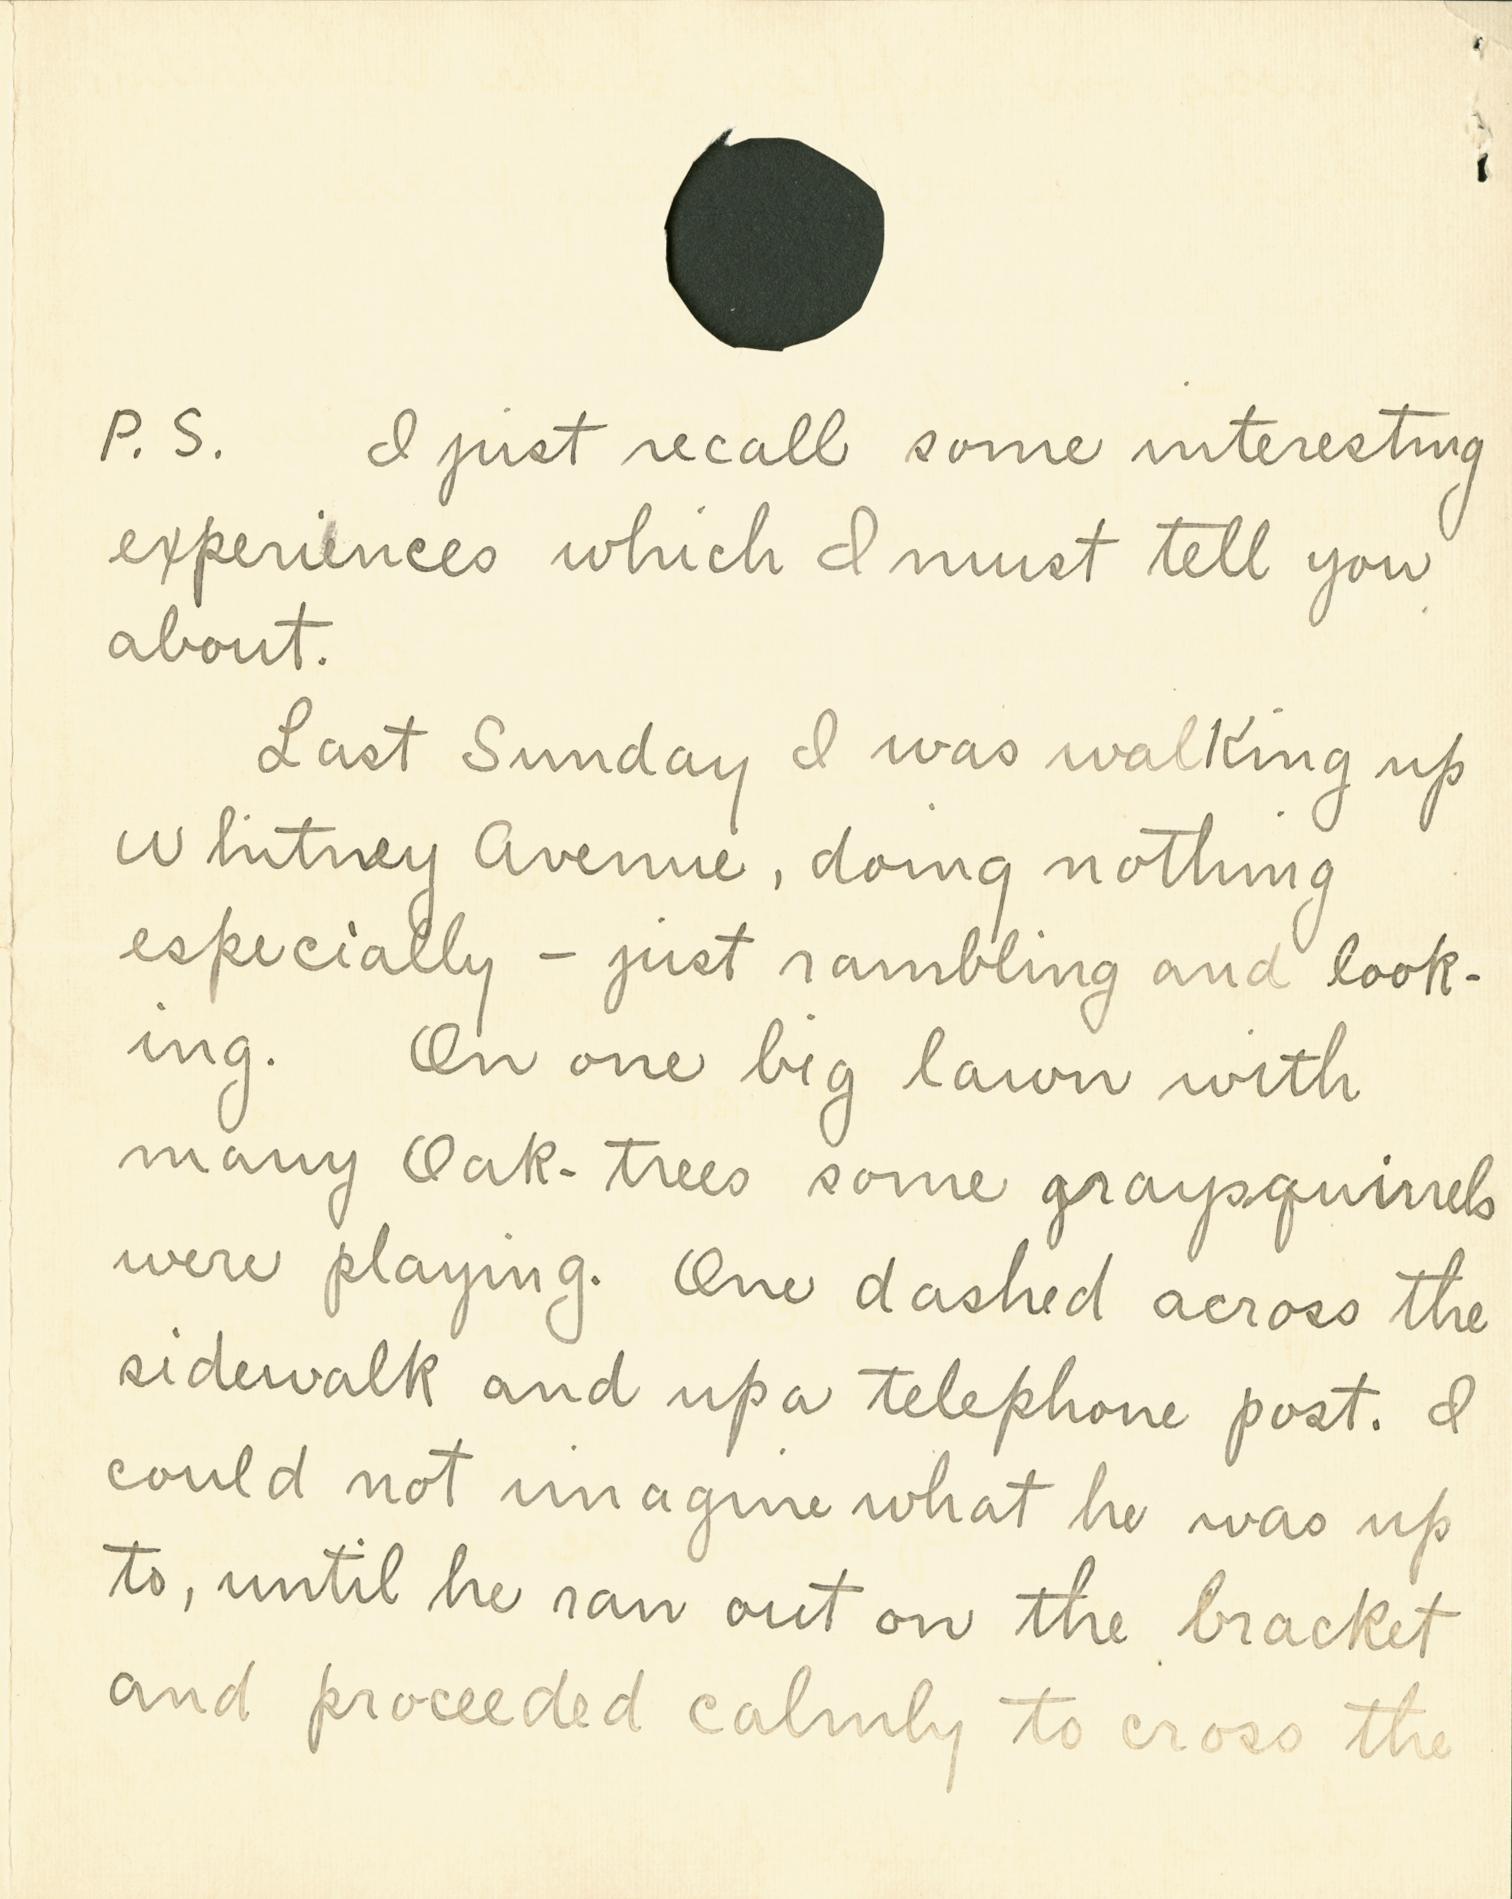 P.S. I just recall some interesting
experiences which I must tell you
about.
Last Sunday I was walking up
Whitney Avenue, doing nothing
especially – just rambling and look-
ing. On one big lawn with
many Oak-trees some gray squirrels
were playing. One dashed across the
sidewalk and up a telephone post. I
could not imagine what he was up
to, until he ran out on the bracket
and proceeded calmly to cross the